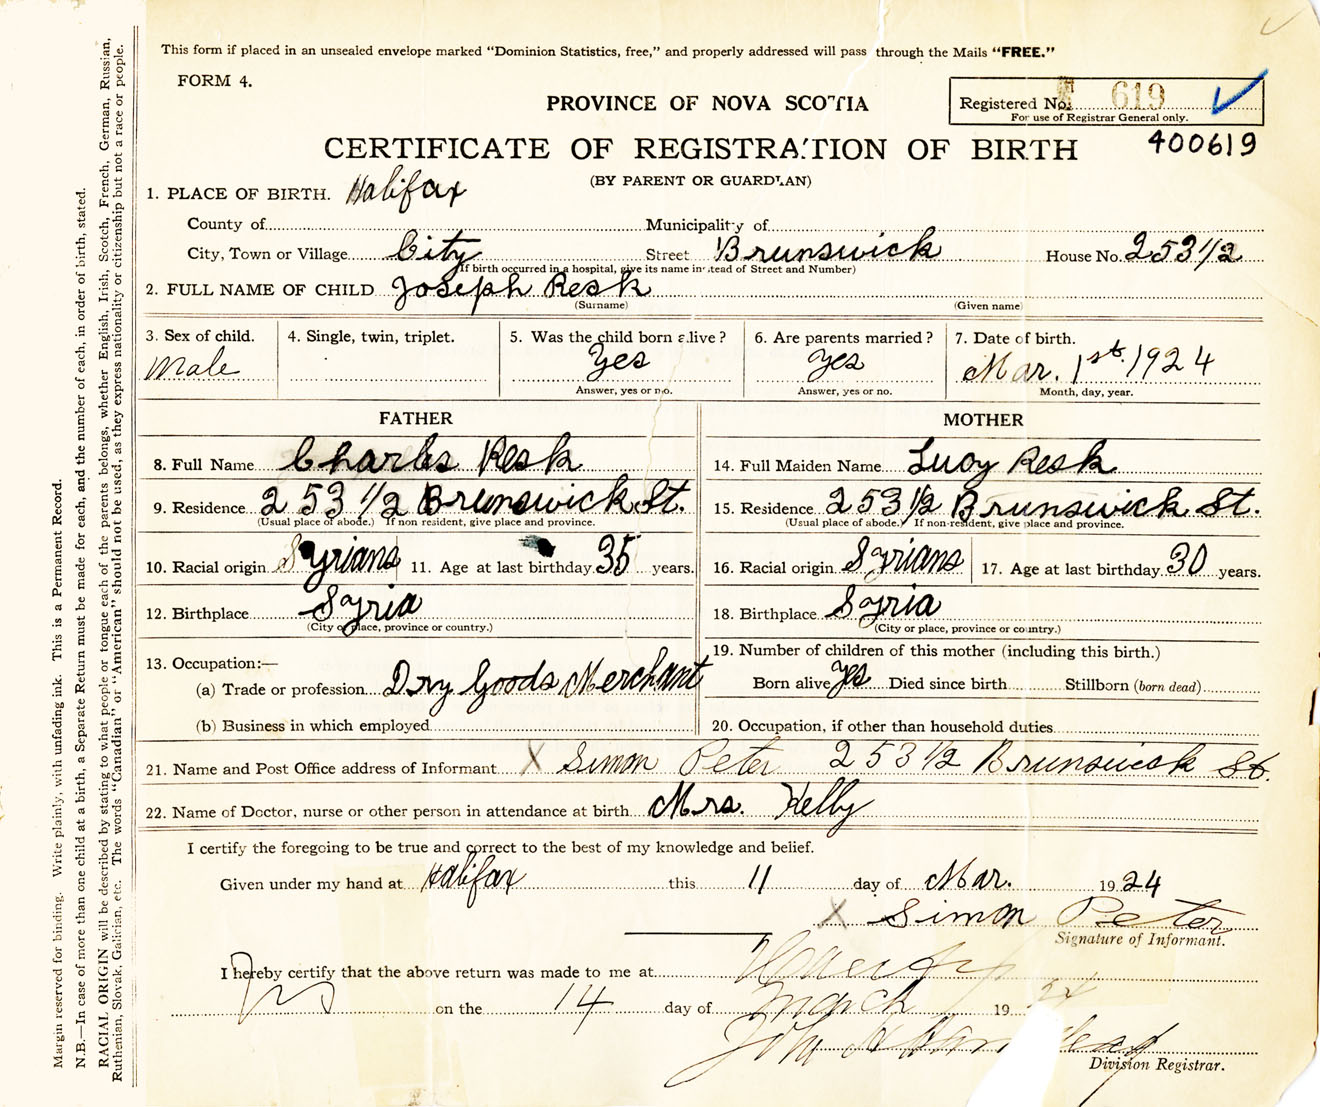 This form if placed in an unsealed envelope marked "Dominion Statistics, free," and properly addressed will pass through the Mails "FREE."
FORM 4.
PROVINCE OF NOVA SCOTIA
Registered No. 619
For use of Registrar General only.
CERTIFICATE OF REGISTRATION OF BIRTH
400619
(BY PARENT OR GUARDIAN)
1. PLACE OF BIRTH. Halifax
County of Municipality of
City, Town or Village City Street Brunswick House No. 253 1/2
(If birth occurred in a hospital, give its name instead of Street and Number)
2. FULL NAME OF CHILD Joseph Resk
(Surname) (Given name)
3. Sex of child. 4. Single, twin, triplet. 5. Was the child born alive? 6. Are parents married? 7. Date of birth.
Male Yes Yes Mar. 1st. 1924
Answer, yes or no. Answer, yes or no. Month, day, year.
FATHER MOTHER
8. Full Name Charles Resk 14. Full Maiden Name Lucy Resk
9. Residence 253 1/2 Brunswick St. 15. Residence 253 1/2 Brunswick St.
(Usual place of abode.) If non resident, give place and province. (Usual place of abode.) If non-resident, give place and province.
10. Racial origin Syrians 11. Age at last birthday 35 years. 16. Racial origin Syrians 17. Age at last birthday 30 years.
12. Birthplace Syria 18. Birthplace Syria
(City or place, province or country.) (City or place, province or country.)
13. Occupation:— 19. Number of children of this mother (including this birth.)
(a) Trade or profession Dry Goods Merchant Born alive Yes Died since birth Stillborn (born dead)
(b) Business in which employed 20. Occupation, if other than household duties
21. Name and Post Office address of Informant X Simon Peter 253 1/2 Brunswick St.
22. Name of Doctor, nurse or other person in attendance at birth Mrs. Kelly
I certify the foregoing to be true and correct to the best of my knowledge and belief.
Given under my hand at Halifax this 11 day of Mar. 1924
X Simon Peter
Signature of Informant.
I hereby certify that the above return was made to me at
on the 14 day of March 19 24
John
Division Registrar.
Margin reserved for binding. Write plainly, with unfading ink. This is a Permanent Record.
N.B.—In case of more than one child at a birth, a Separate Return must be made for each, and the number of each, in order of birth, stated.
RACIAL ORIGIN will be described by stating to what people or tongue each of the parents belongs, whether English, Irish, Scotch, French, German, Russian,
Ruthenian, Slovak, Galician, etc. The words "Canadian" or "American" should not be used, as they express nationality or citizenship but not a race or people.